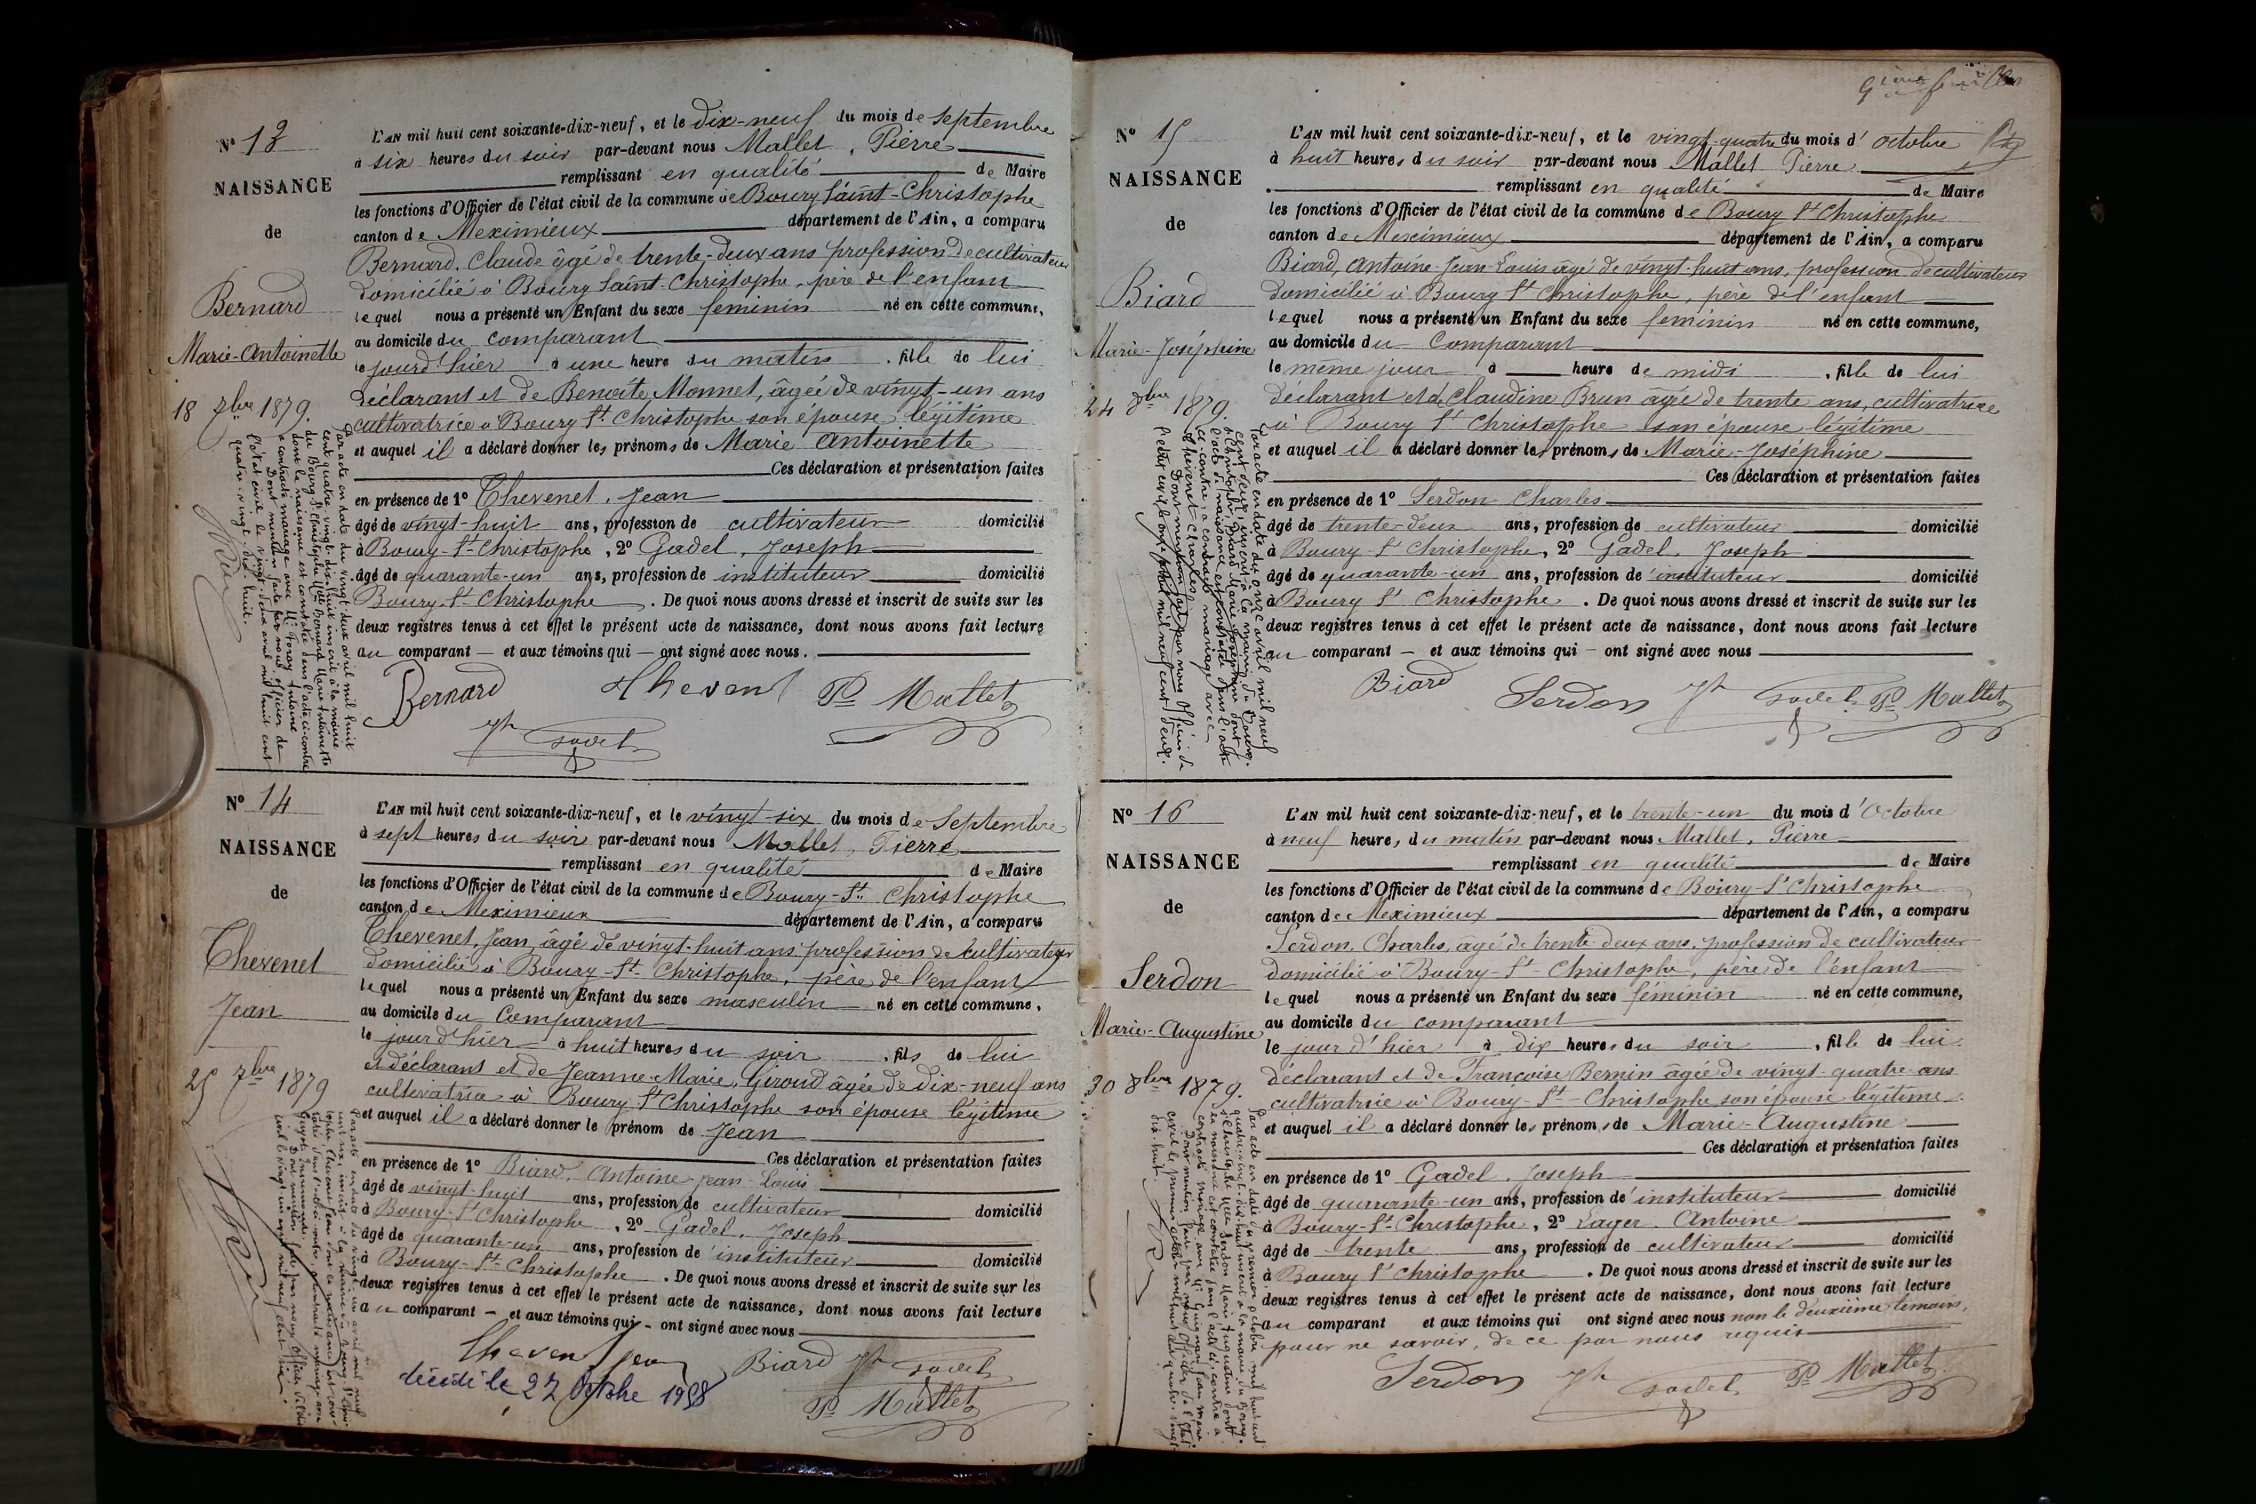 Nº 13
NAISSANCE
de
Bernard
Marie-Antoinette
18 7bre 1879.
L'AN mil huit cent soixante-dix-neuf, et le dix-neuf du mois de septembre
à six heures du soir par-devant nous Mallet, Pierre
remplissant en qualité de Maire
les fonctions d'Officier de l'état civil de la commune de Bourg Saint-Christophe
canton de Meximieux département de l'Ain, a comparu
Bernard, Claude âgé de trente-deux ans profession de cultivateur
domicilié à Bourg Saint-Christophe, père de l'enfant
lequel nous a présenté un Enfant du sexe féminin né en cette commune,
au domicile du comparant
le jourd'hier à une heure du matin, fille de lui
déclarant et de Benoîte Monnet, âgée de vingt-un ans
cultivatrice à Bourg St. Christophe son épouse légitime
et auquel il a déclaré donner les prénoms de Marie Antoinette
Ces déclaration et présentation faites
en présence de 1º Thevenet, Jean
âgé de vingt-huit ans, profession de cultivateur domicilié
à Bourg-St-Christophe, 2º Gadel, Joseph
âgé de quarante-un ans, profession de instituteur domicilié
Bourg-St-Christophe. De quoi nous avons dressé et inscrit de suite sur les
deux registres tenus à cet effet le présent acte de naissance, dont nous avons fait lecture
au comparant — et aux témoins qui — ont signé avec nous.
Bernard Thevenet Pre Mallet
Jh Gadel
Par acte en date du vingt-deux avril mil huit
cent quatre-vingt-dix-huit inscrit à la mairie
du Bourg-St-Christophe Mlle Bernard Marie Antoinette
dont la naissance est constatée dans l'acte ci-contre
a contracté mariage avec Mr Foray Antoine
Dont mention faite par nous officier de
l'état civil le vingt-deux avril mil huit cent
quatre-vingt-dix-huit.
Nº 14
NAISSANCE
de
Thevenet
Jean
25 7bre 1879
L'AN mil huit cent soixante-dix-neuf, et le vingt-six du mois de septembre
à sept heures du soir par-devant nous Mallet, Pierre
remplissant en qualité de Maire
les fonctions d'Officier de l'état civil de la commune de Bourg-St- Christophe
canton de Meximieux département de l'Ain, a comparu
Thevenet, Jean, âgé de vingt-huit ans profession de cultivateur
domicilié à Bourg-St- Christophe, père de l'enfant
lequel nous a présenté un Enfant du sexe masculin né en cette commune,
au domicile du Comparant
le jour d'hier à huit heures du soir, fils de lui
et déclarant et de Jeanne-Marie, Giroud âgée de dix-neuf ans
cultivatrice à Bourg St Christophe son épouse légitime
et auquel il a déclaré donner le prénom de Jean
Ces déclaration et présentation faites
en présence de 1º Biard, Antoine Jean Louis
âgé de vingt-huit ans, profession de cultivateur domicilié
à Bourg-St Christophe, 2º Gadel, Joseph
âgé de quarante-un ans, profession de instituteur domicilié
à Bourg-St-Christophe. De quoi nous avons dressé et inscrit de suite sur les
deux registres tenus à cet effet le présent acte de naissance, dont nous avons fait lecture
au comparant — et aux témoins qui — ont signé avec nous
Thevenet Jean Biard Jh Gadel
décédé le 27 Octobre 1958
Pre Mallet
Nº 15
NAISSANCE
de
Biard
Marie-Joséphine
24 8bre 1879.
L'AN mil huit cent soixante-dix-neuf, et le vingt-quatre du mois d'octobre
à huit heures du soir par-devant nous Mallet Pierre
remplissant en qualité de Maire
les fonctions d'Officier de l'état civil de la commune de Bourg St Christophe
canton de Meximieux département de l'Ain, a comparu
Biard, Antoine-Jean Louis âgé de vingt-huit ans, profession de cultivateur
domicilié à Bourg St Christophe, père de l'enfant
lequel nous a présenté un Enfant du sexe féminin né en cette commune,
au domicile du Comparant
le même jour à heure de midi, fille de lui
déclarant et de Claudine Brun âgée de trente ans, cultivatrice
à Bourg St Christophe son épouse légitime
et auquel il a déclaré donner les prénoms de Marie-Joséphine
Ces déclaration et présentation faites
en présence de 1º Serdon Charles
âgé de trente-deux ans, profession de cultivateur domicilié
à Bourg-St Christophe, 2º Gadel, Joseph
âgé de quarante-un ans, profession de instituteur domicilié
à Bourg St Christophe. De quoi nous avons dressé et inscrit de suite sur les
deux registres tenus à cet effet le présent acte de naissance, dont nous avons fait lecture
au comparant — et aux témoins qui — ont signé avec nous
Biard Serdon Jh Gadel Pre Mallet
Nº 16
NAISSANCE
de
Serdon
Marie-Augustine
30 8bre 1879.
L'AN mil huit cent soixante-dix-neuf, et le trente-un du mois d'octobre
à neuf heures du matin par-devant nous Mallet, Pierre
remplissant en qualité de Maire
les fonctions d'Officier de l'état civil de la commune de Bourg-St Christophe
canton de Meximieux département de l'Ain, a comparu
Serdon, Charles, âgé de trente-deux ans, profession de cultivateur
domicilié à Bourg-St-Christophe, père de l'enfant
lequel nous a présenté un Enfant du sexe féminin né en cette commune,
au domicile du comparant
le jour d'hier à dix heures du soir, fille de lui
déclarant et de Françoise Bernin âgée de vingt-quatre ans
cultivatrice à Bourg-St-Christophe son épouse légitime
et auquel il a déclaré donner les prénoms de Marie-Augustine
Ces déclaration et présentation faites
en présence de 1º Gadel, Joseph
âgé de quarante-un ans, profession de instituteur domicilié
à Bourg-St-Christophe, 2º Lager, Antoine
âgé de trente ans, profession de cultivateur domicilié
à Bourg St Christophe. De quoi nous avons dressé et inscrit de suite sur les
deux registres tenus à cet effet le présent acte de naissance, dont nous avons fait lecture
au comparant et aux témoins qui ont signé avec nous non le deuxième témoin,
pour ne savoir, de ce par nous requis
Serdon Jh Gadel Pre Mallet